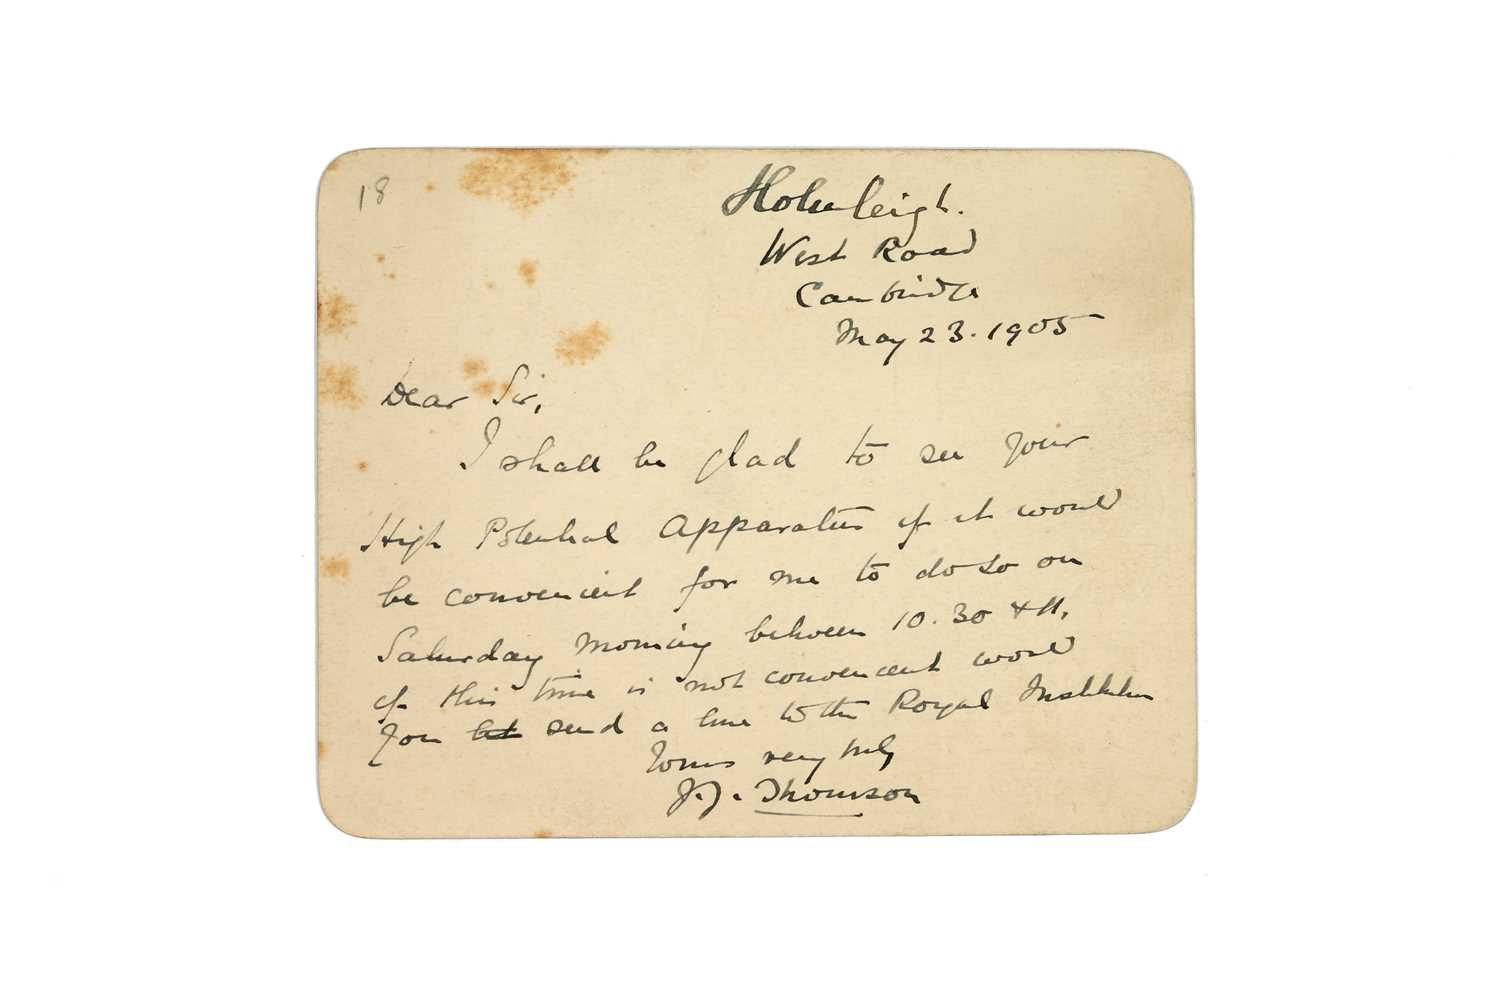 18
Holmleigh.
West Road
Cambridge
May 23. 1905
Dear Sir,
I shall be glad to see your
High Potential Apparatus if it would
be convenient for me to do so on
Saturday morning between 10.30 & 11,
if this time is not convenient would
you let send a line to the Royal Institution
Yours very truly
J.J. Thomson